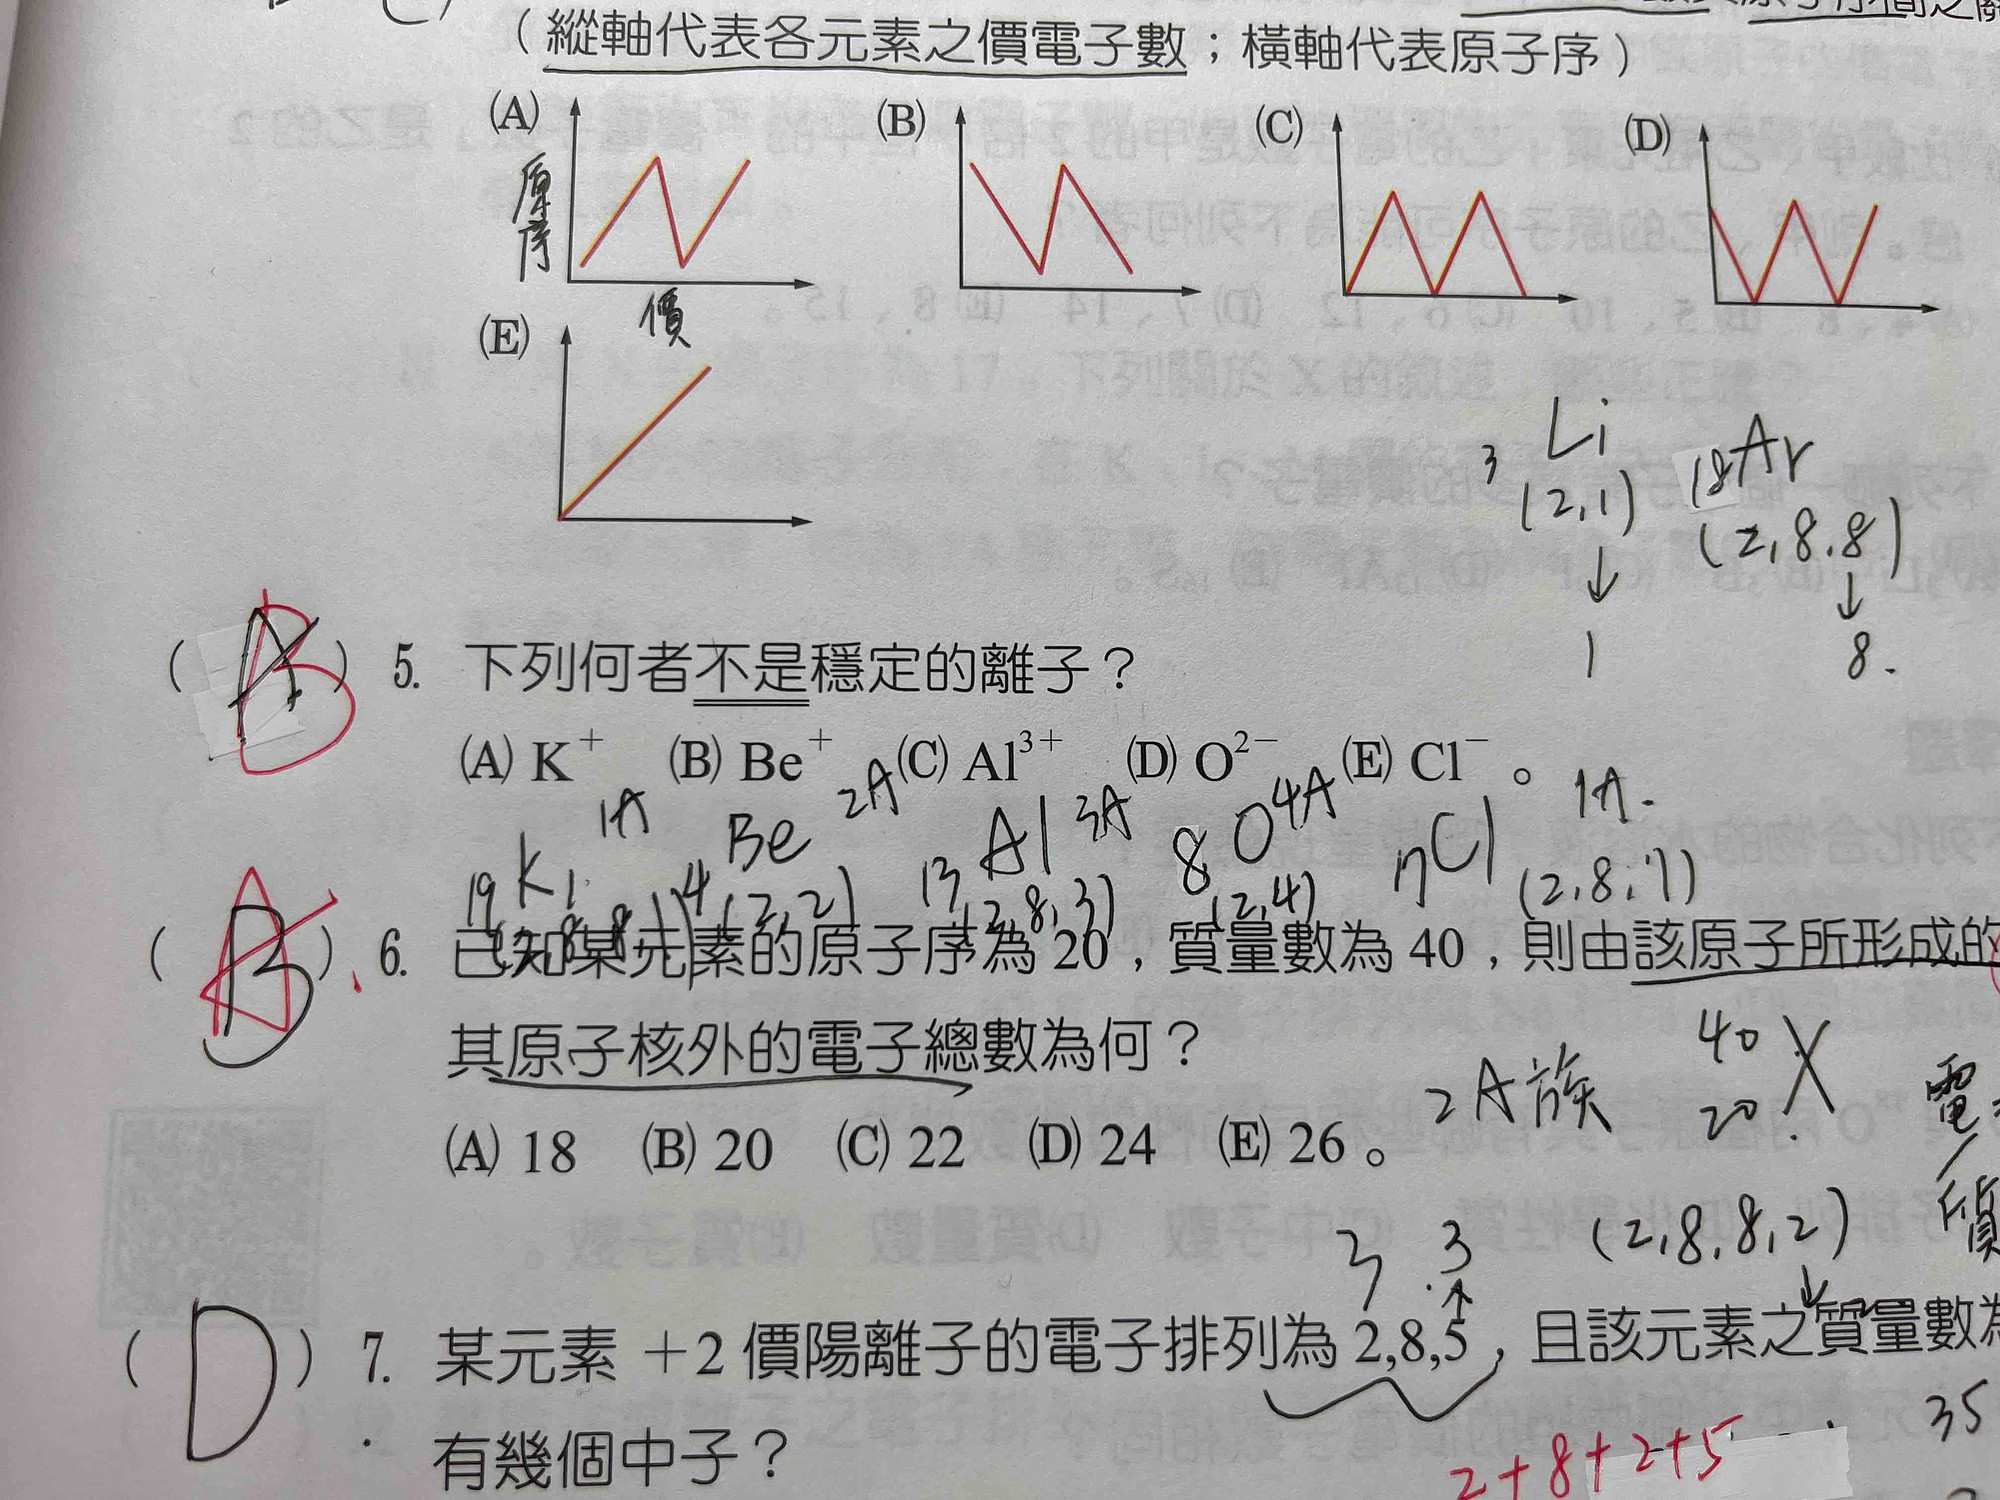 （縱軸代表各元素之價電子數；橫軸代表原子序）
(A) (B) (C) (D)
原序
價
(E)
Li 18Ar
3 (2,1) (2,8,8)
1 8.
(B) 5. 下列何者不是穩定的離子？
(A) K⁺ (B) Be⁺ (C) Al³⁺ (D) O²⁻ (E) Cl⁻。
1A 2A 3A 4A 1A.
19 K 4 Be 13 Al 8 O 17 Cl
(2,8,8,1) (2,2) (2,8,3) (2,4) (2,8,7)
(A) 6. 已知某元素的原子序為 20，質量數為 40，則由該原子所形成的
其原子核外的電子總數為何？
2A族 40 20 X 電
(A) 18 (B) 20 (C) 22 (D) 24 (E) 26。
3 3 (2,8,8,2) 質
(D) 7. 某元素 +2 價陽離子的電子排列為 2,8,5，且該元素之質量數為
35
有幾個中子？
2+8+2+5